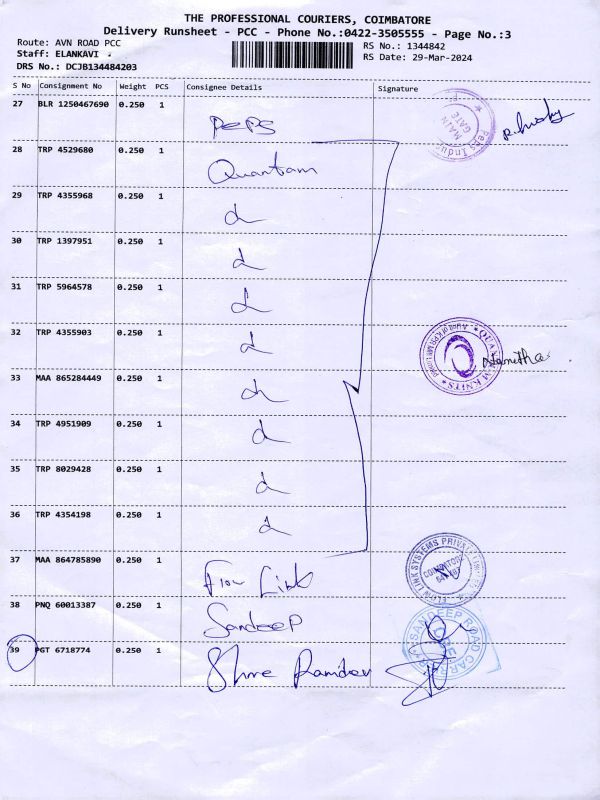 THE PROFESSIONAL COURIERS, COIMBATORE
Delivery Runsheet - PCC - Phone No.:0422-3505555 - Page No.:3
Route: AVN ROAD PCC
Staff: ELANKAVI
DRS No.: DCJB134484203
RS No.: 1344842
RS Date: 29-Mar-2024
S No Consignment No Weight PCS Consignee Details Signature
27 BLR 1250467690 0.250 1 PEPS
MAIN GATE
28 TRP 4529680 0.250 1 Quantam
29 TRP 4355968 0.250 1
30 TRP 1397951 0.250 1
31 TRP 5964578 0.250 1
32 TRP 4355903 0.250 1
Namitha
33 MAA 865284449 0.250 1
34 TRP 4951909 0.250 1
35 TRP 8029428 0.250 1
36 TRP 4354198 0.250 1
37 MAA 864785890 0.250 1 Flow Link
FLOW LINK SYSTEMS PRIVATE
COIMBATORE
38 PNQ 60013387 0.250 1 Sandeep
SANDEEP ROAD CARRIERS
39 PGT 6718774 0.250 1 Shree Ramdev